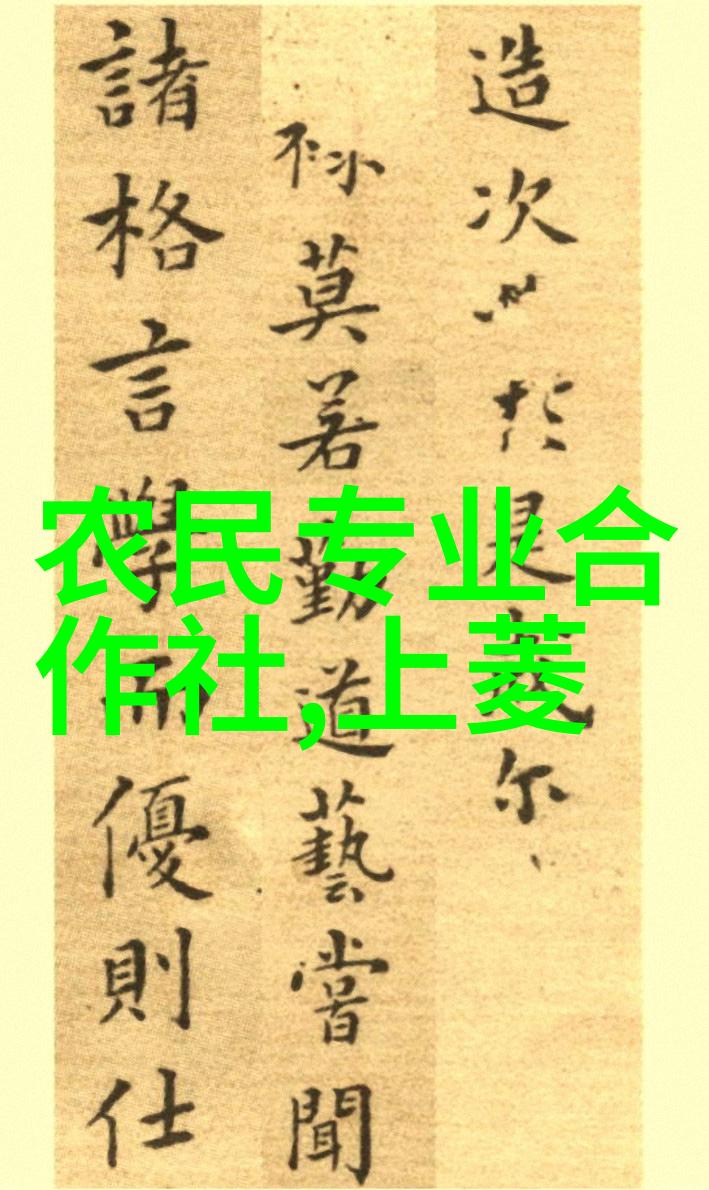 造次於是尔
莫若勤道藝嘗聞
諸格言學而優則仕
农民专业合
作社,上菱